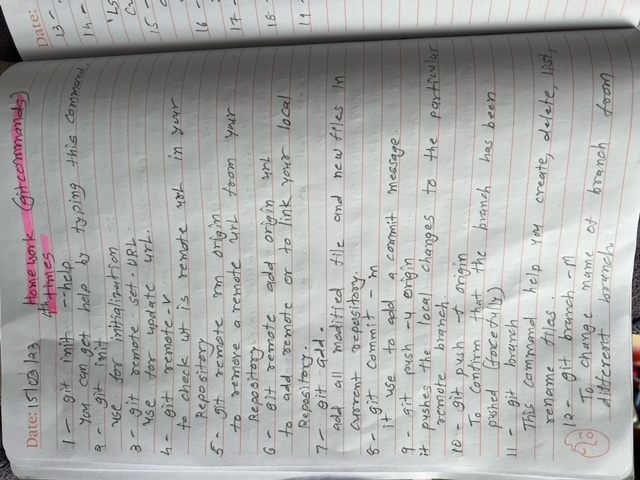 Date: 15/03/23 Home work (git commands)
4th times
1 - git init --help
You can get help by typing this command.
2 - git init
use for initialization
3 - git remote set-URL
use for update url.
4 - git remote -v
to check wt is remote url in your
Repository
5 - git remote rm origin
to remove a remote url from your
Repository
6 - git remote add origin url
to add remote or to link your local
Repository.
7 - git add .
add all modified file and new files in
current repository.
8 - git commit - m
it use to add a commit message.
9 - git push -u origin
it pushes the local changes to the particular
remote branch.
10 - git push -f origin
To confirm that the branch has been
pushed (forcefully)
11 - git branch
This command help you create, delete, list,
rename files.
12 - git branch -M
To change name of branch from
different branch
Date:
13 -
14 -
15 -
16 -
17 -
18 -
19 -